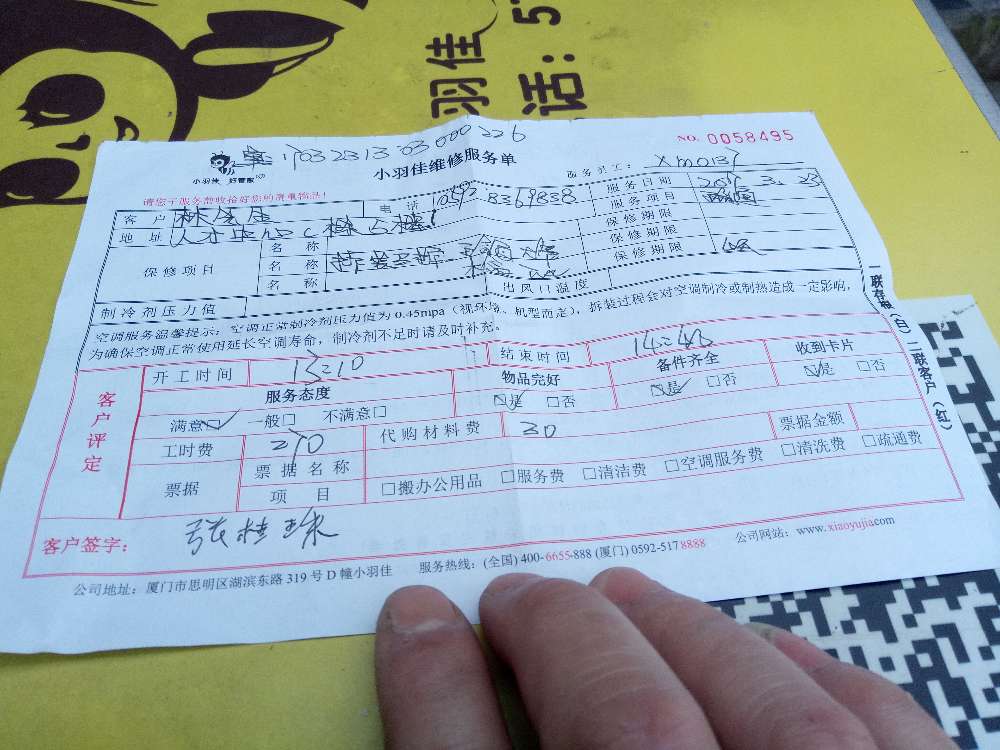 羽佳
话：5
1703231303000226
NO. 0058495
小羽佳 好管家
小羽佳维修服务单
服务员工： Xm0137
请您于服务前收拾好您的贵重物品！
客 户 电 话 0592 8369838 服务日期
地 址 服务项目
保修项目 名 称 保修期限
名 称 保修期限
名 称 保修期限
制冷剂压力值 出风口温度
空调服务温馨提示：空调正常制冷剂压力值为 0.45mpa（视环境、机型而定），拆装过程会对空调制冷或制热造成一定影响，
为确保空调正常使用延长空调寿命，制冷剂不足时请及时补充。
一联存根（白）二联客户（红）
客户评定
开工时间 13:10 结束时间 14:48
服务态度 物品完好 备件齐全 收到卡片
满意□ 一般□ 不满意□ □是 □否 □是 □否 □是 □否
工时费 270 代购材料费 30 票据金额
票据 票据名称
项 目 □搬办公用品 □服务费 □清洁费 □空调服务费 □清洗费 □疏通费
客户签字： 张桂珠
公司地址：厦门市思明区湖滨东路 319 号 D 幢小羽佳 服务热线：(全国) 400-6655-888 (厦门) 0592-5178888 公司网站：www.xiaoyujia.com